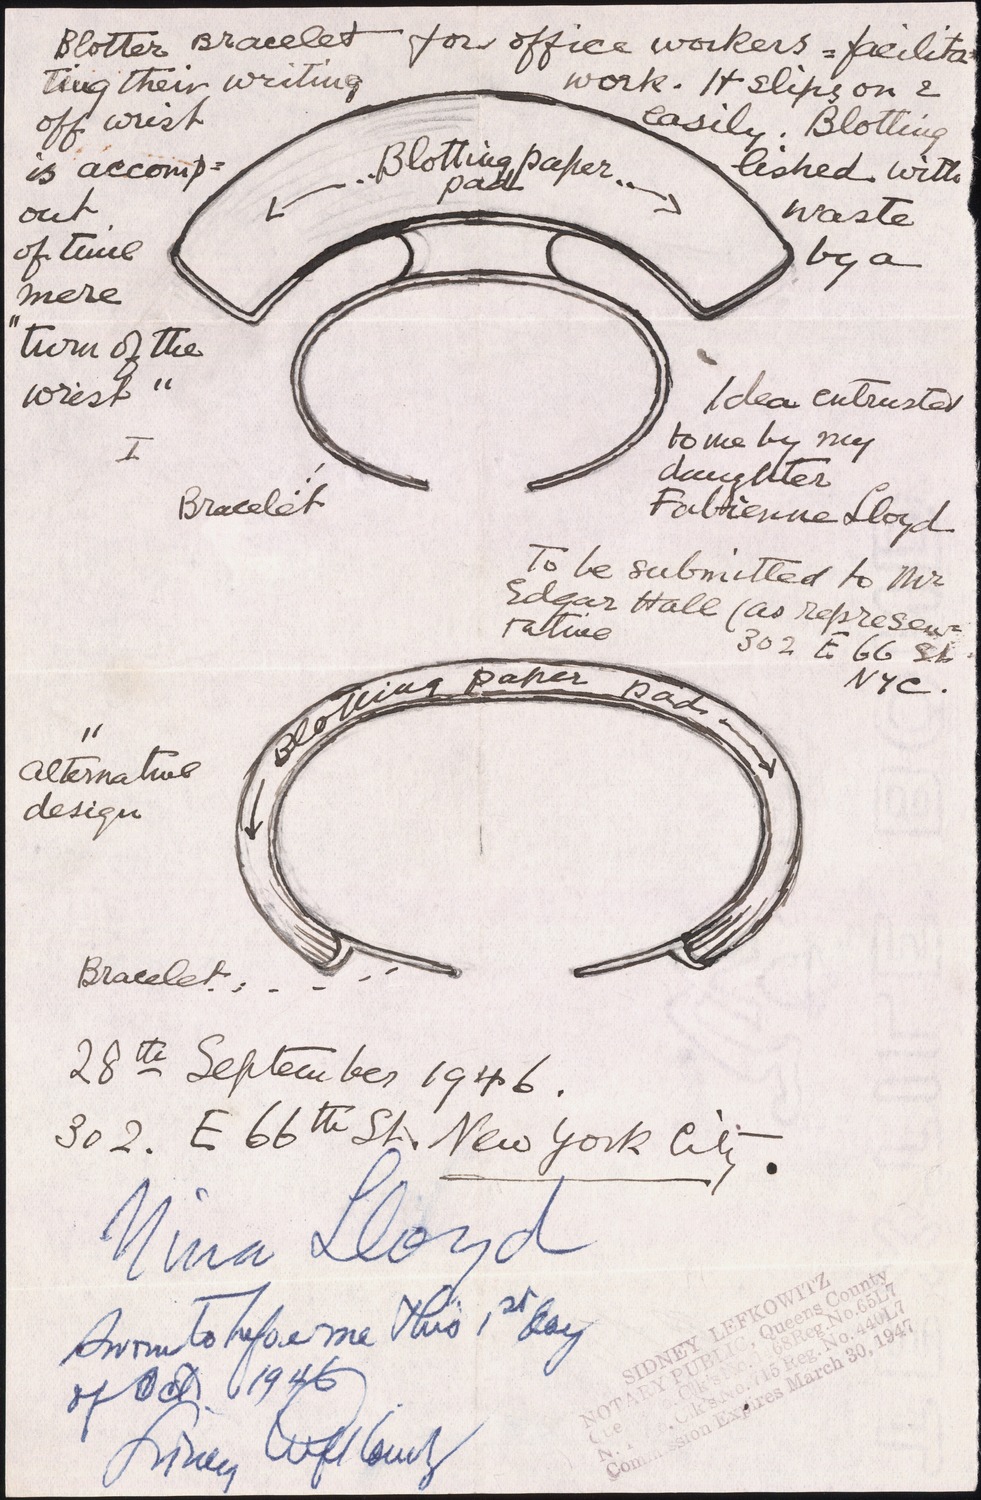 Blotter Bracelet for office workers = facilita=
ting their writing work. It slips on &
off wrist easily. Blotting
is accomp= lished with
out waste
of time by a
mere
"turn of the
wrist"
I
Blotting paper
pad
Bracelet
Idea entrusted
to me by my
daughter
Fabienne Lloyd
To be submitted to Mr
Edgar Hall (as represen=
tative
302 E 66 St.
NYC.
Blotting paper pad
"
alternative
design
Bracelet
28th September 1946.
302. E 66th St. New York City.
Mina Lloyd
Sworn to before me this 1st day
of Oct. 1946
Sidney Lefkowitz
SIDNEY LEFKOWITZ
NOTARY PUBLIC, Queens County
Clk's No. Reg. No. 65L7
N. Clk's No. 715 Reg. No. 440L7
Commission Expires March 30, 1947